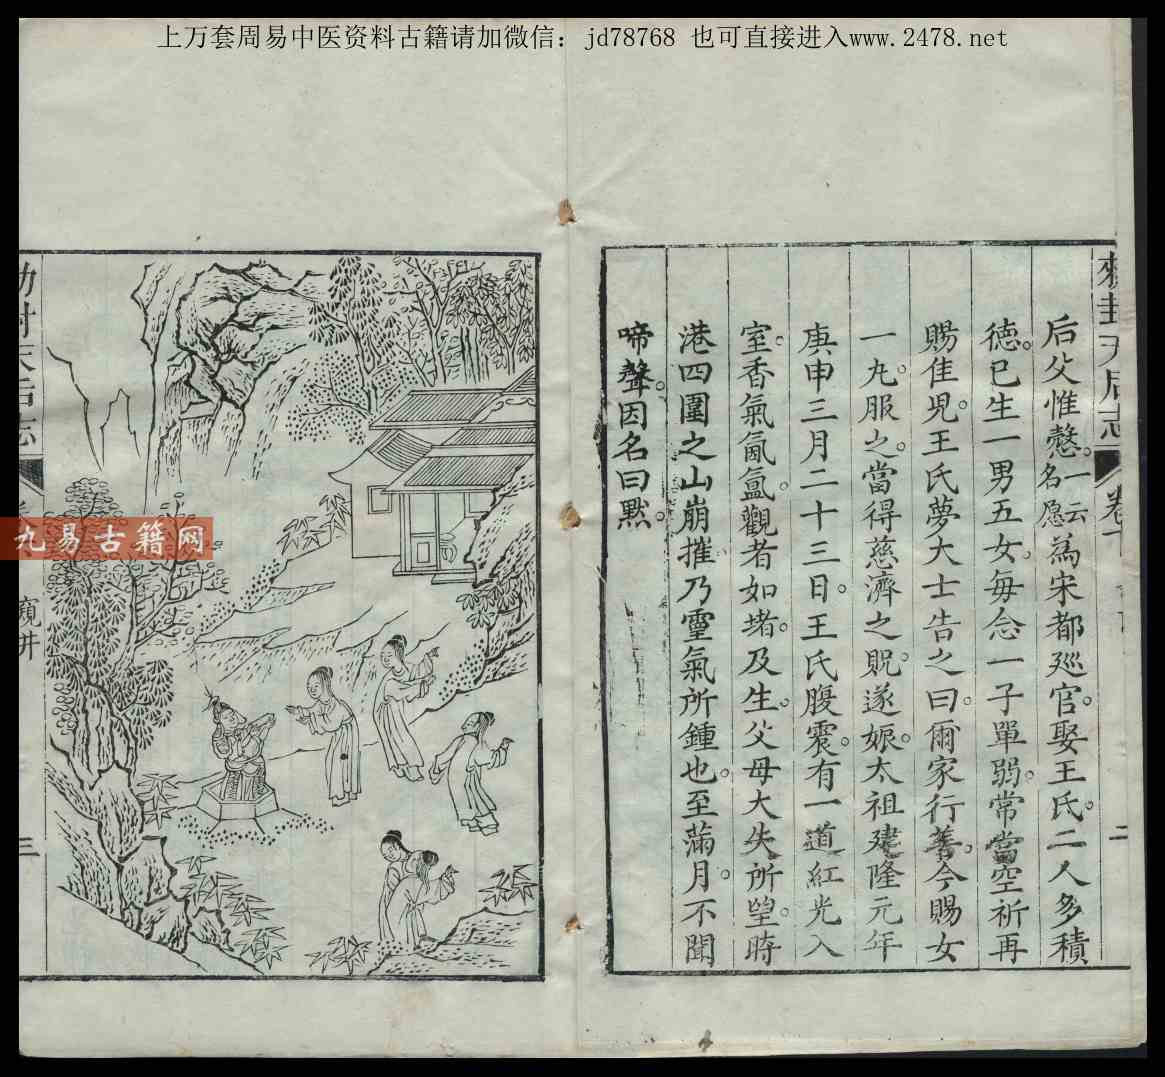 上万套周易中医资料古籍请加微信：jd78768 也可直接进入www.2478.net
敕封天后志
卷
二
后父惟慤。一云名愿為宋都廵官。娶王氏。二人多積
德。已生一男五女。每念一子單弱。常當空祈再
賜佳兒。王氏夢大士告之曰。爾家行善。今賜女
一丸。服之。當得慈濟之貺。遂娠。太祖建隆元年
庚申三月二十三日。王氏腹震。有一道紅光入
室。香氣氤氳。觀者如堵。及生。父母大失所望。時
港四圍之山崩摧。乃靈氣所鍾也。至滿月。不聞
啼聲。因名曰默。
封天后志
窺井
三
九易古籍网